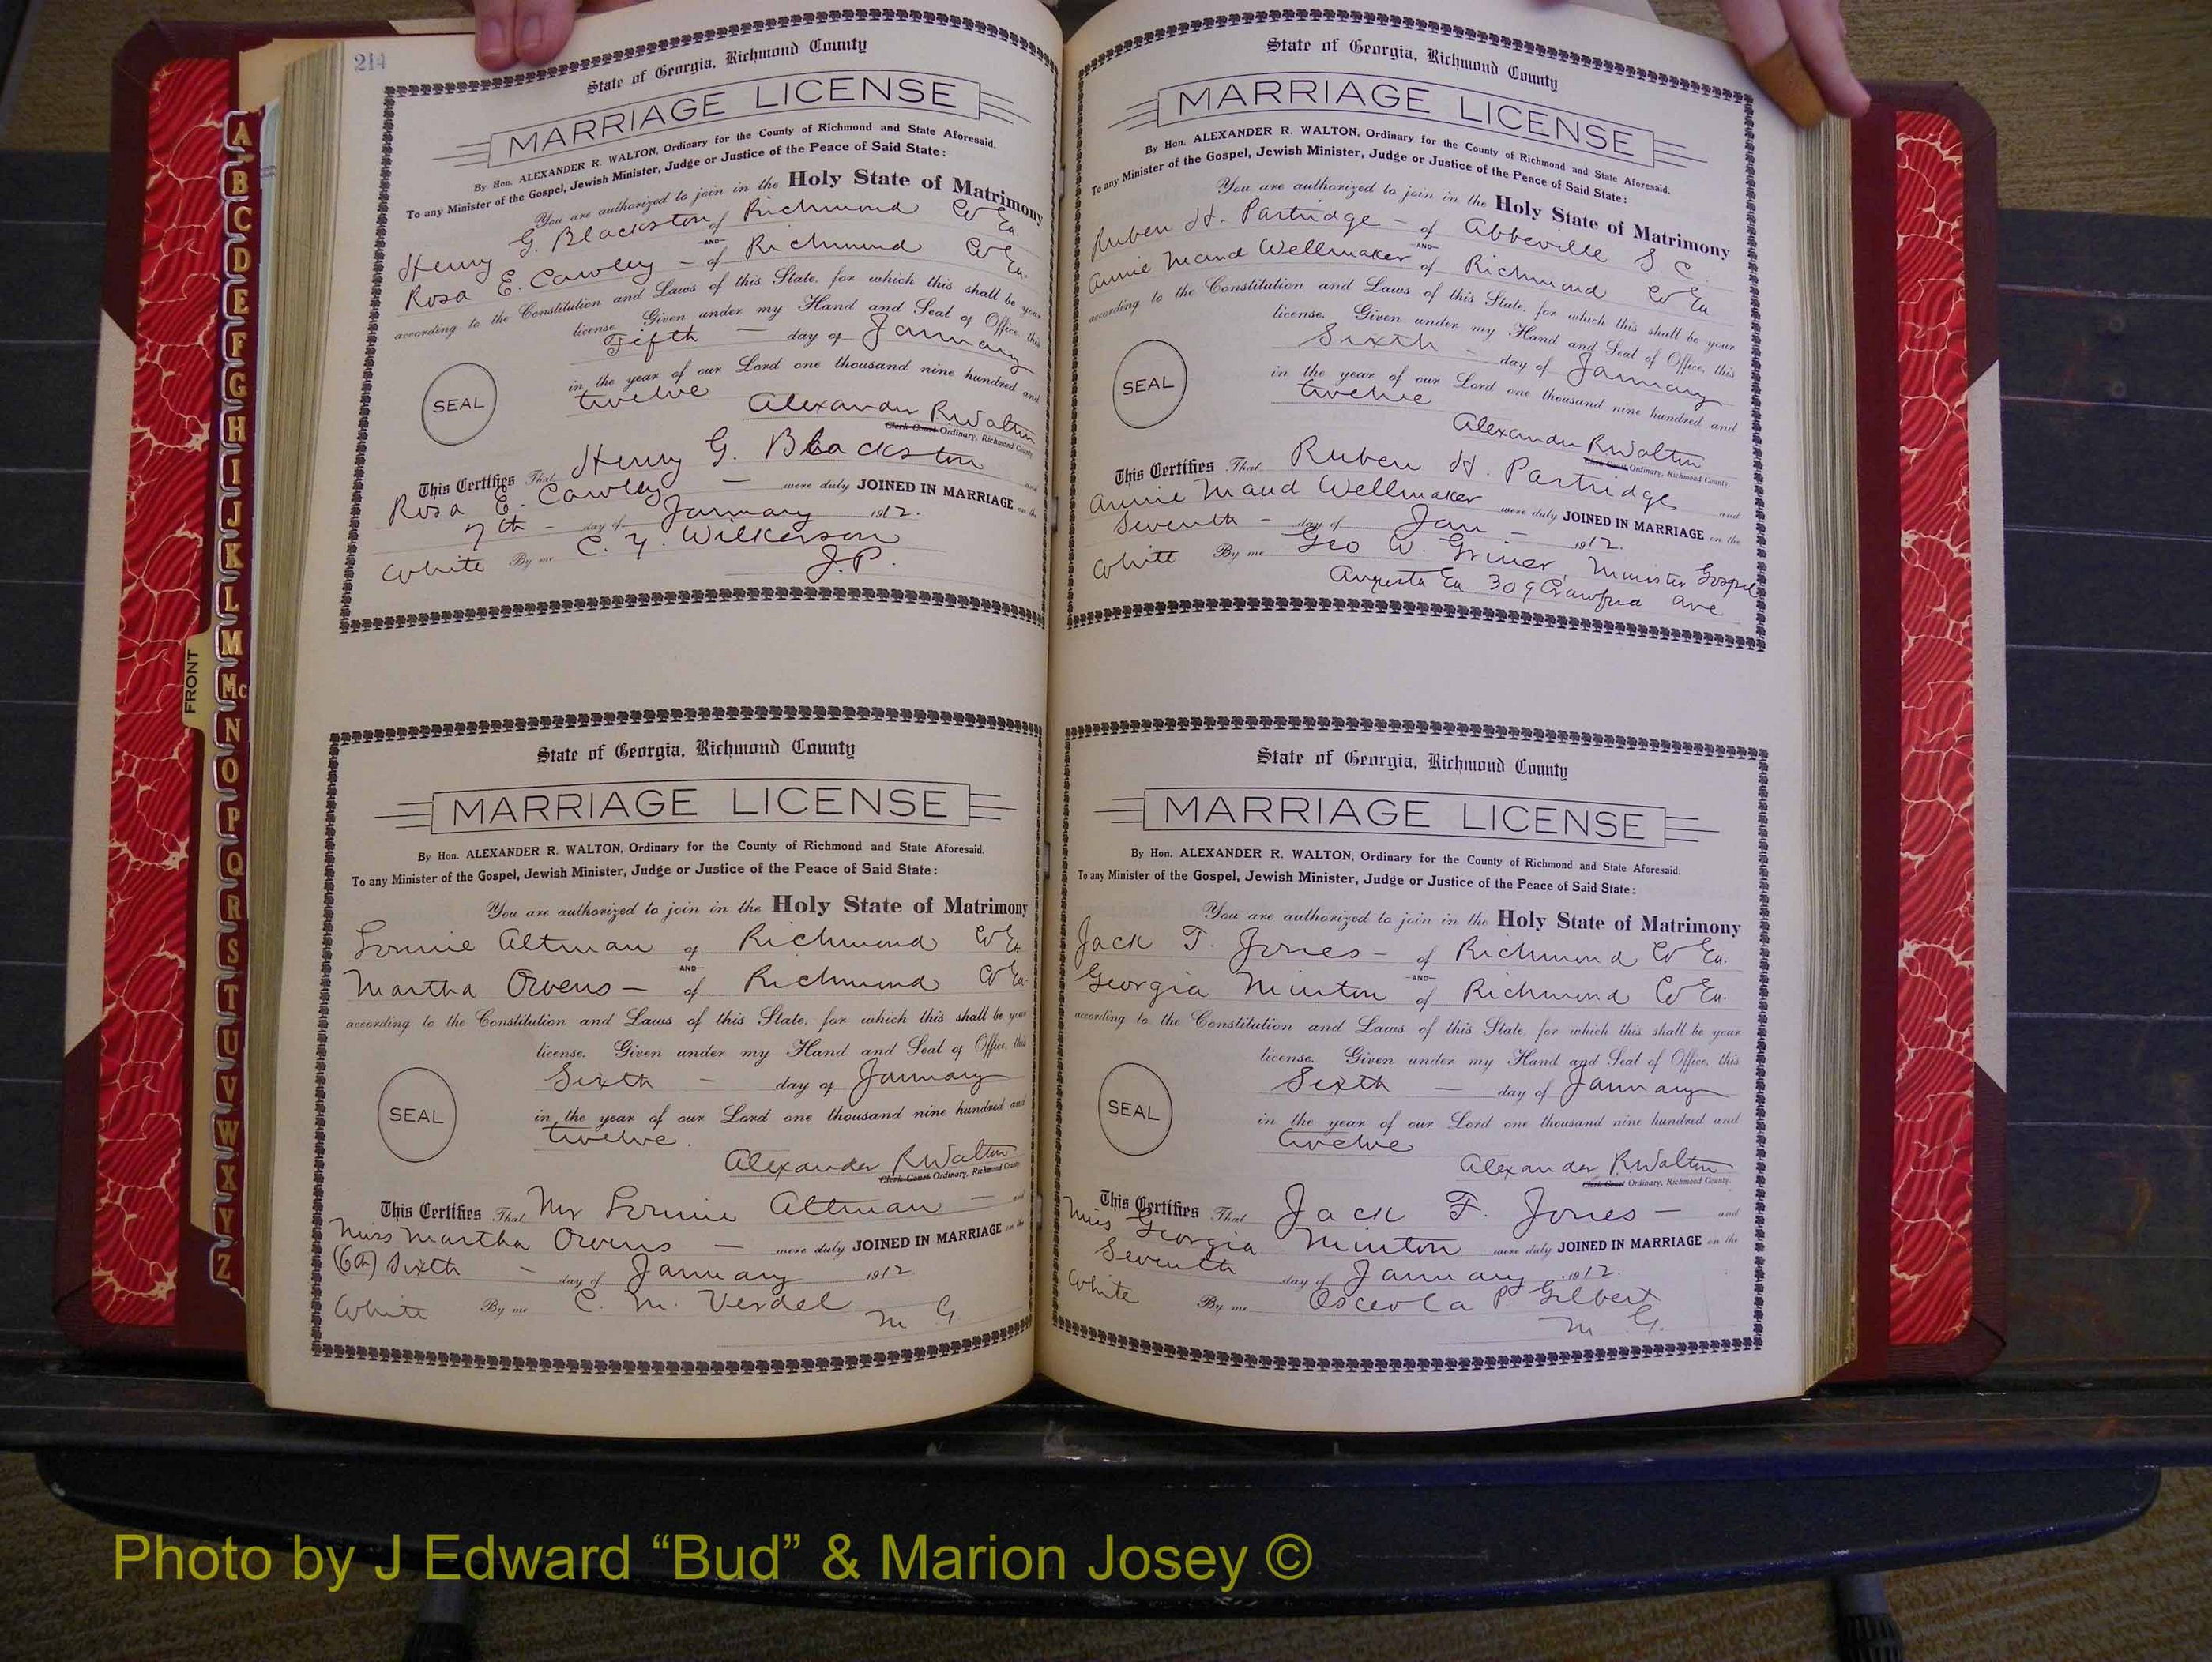 214
State of Georgia, Richmond County
MARRIAGE LICENSE
By Hon. ALEXANDER R. WALTON, Ordinary for the County of Richmond and State Aforesaid.
To any Minister of the Gospel, Jewish Minister, Judge or Justice of the Peace of Said State:
You are authorized to join in the Holy State of Matrimony
Henry G. Blackston of Richmond Co Ga.
AND
Rosa E. Cawley - of Richmond Co Ga.
according to the Constitution and Laws of this State, for which this shall be your
license. Given under my Hand and Seal of Office, this
Fifth - day of January
SEAL
in the year of our Lord one thousand nine hundred and
twelve
Alexander R Walton
Clerk Court Ordinary, Richmond County.
This Certifies That Henry G. Blackston and
Rosa E. Cawley - were duly JOINED IN MARRIAGE on the
7th - day of January 1912.
White By me C. Y. Wilkerson
J.P.
State of Georgia, Richmond County
MARRIAGE LICENSE
By Hon. ALEXANDER R. WALTON, Ordinary for the County of Richmond and State Aforesaid.
To any Minister of the Gospel, Jewish Minister, Judge or Justice of the Peace of Said State:
You are authorized to join in the Holy State of Matrimony
Lonnie Altman of Richmond Co Ga.
AND
Martha Owens - of Richmond Co Ga.
according to the Constitution and Laws of this State, for which this shall be your
license. Given under my Hand and Seal of Office, this
Sixth - day of January
SEAL
in the year of our Lord one thousand nine hundred and
twelve.
Alexander R Walton
Clerk Court Ordinary, Richmond County
This Certifies That Mr Lonnie Altman - and
Miss Martha Owens - were duly JOINED IN MARRIAGE on the
(6th) Sixth - day of January 1912
White By me C. M. Verdel
M G
State of Georgia, Richmond County
MARRIAGE LICENSE
By Hon. ALEXANDER R. WALTON, Ordinary for the County of Richmond and State Aforesaid.
To any Minister of the Gospel, Jewish Minister, Judge or Justice of the Peace of Said State:
You are authorized to join in the Holy State of Matrimony
Ruben H. Partridge - of Abbeville S C.
AND
Annie Maud Wellmaker of Richmond Co Ga
according to the Constitution and Laws of this State, for which this shall be your
license. Given under my Hand and Seal of Office, this
Sixth - day of January
SEAL
in the year of our Lord one thousand nine hundred and
twelve
Alexander R Walton
Clerk Court Ordinary, Richmond County.
This Certifies That Ruben H. Partridge and
Annie Maud Wellmaker were duly JOINED IN MARRIAGE on the
Seventh - day of Jan - 1912.
White By me Geo W. Griner, Minister Gospel
Augusta Ga 309 Crawford ave
State of Georgia, Richmond County
MARRIAGE LICENSE
By Hon. ALEXANDER R. WALTON, Ordinary for the County of Richmond and State Aforesaid.
To any Minister of the Gospel, Jewish Minister, Judge or Justice of the Peace of Said State:
You are authorized to join in the Holy State of Matrimony
Jack T. Jones - of Richmond Co Ga.
AND
Georgia Minton of Richmond Co Ga.
according to the Constitution and Laws of this State, for which this shall be your
license. Given under my Hand and Seal of Office, this
Sixth - day of January
SEAL
in the year of our Lord one thousand nine hundred and
twelve
Alexander R Walton
Clerk Court Ordinary, Richmond County.
This Certifies That Jack F. Jones - and
Miss Georgia Minton were duly JOINED IN MARRIAGE on the
Seventh day of January 1912.
White By me Osceola P Gilbert
M G.
A
B
C
D
E
F
G
H
I
J
K
L
M
Mc
N
O
P
Q
R
S
T
U
V
W
X
Y
Z
FRONT
Photo by J Edward “Bud” & Marion Josey ©